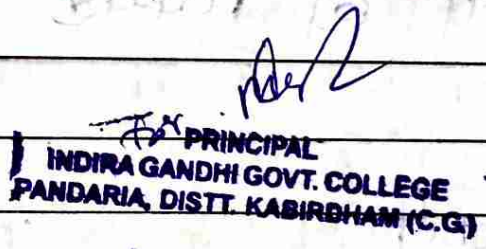 For PRINCIPAL
INDIRA GANDHI GOVT. COLLEGE
PANDARIA, DISTT. KABIRDHAM (C.G)